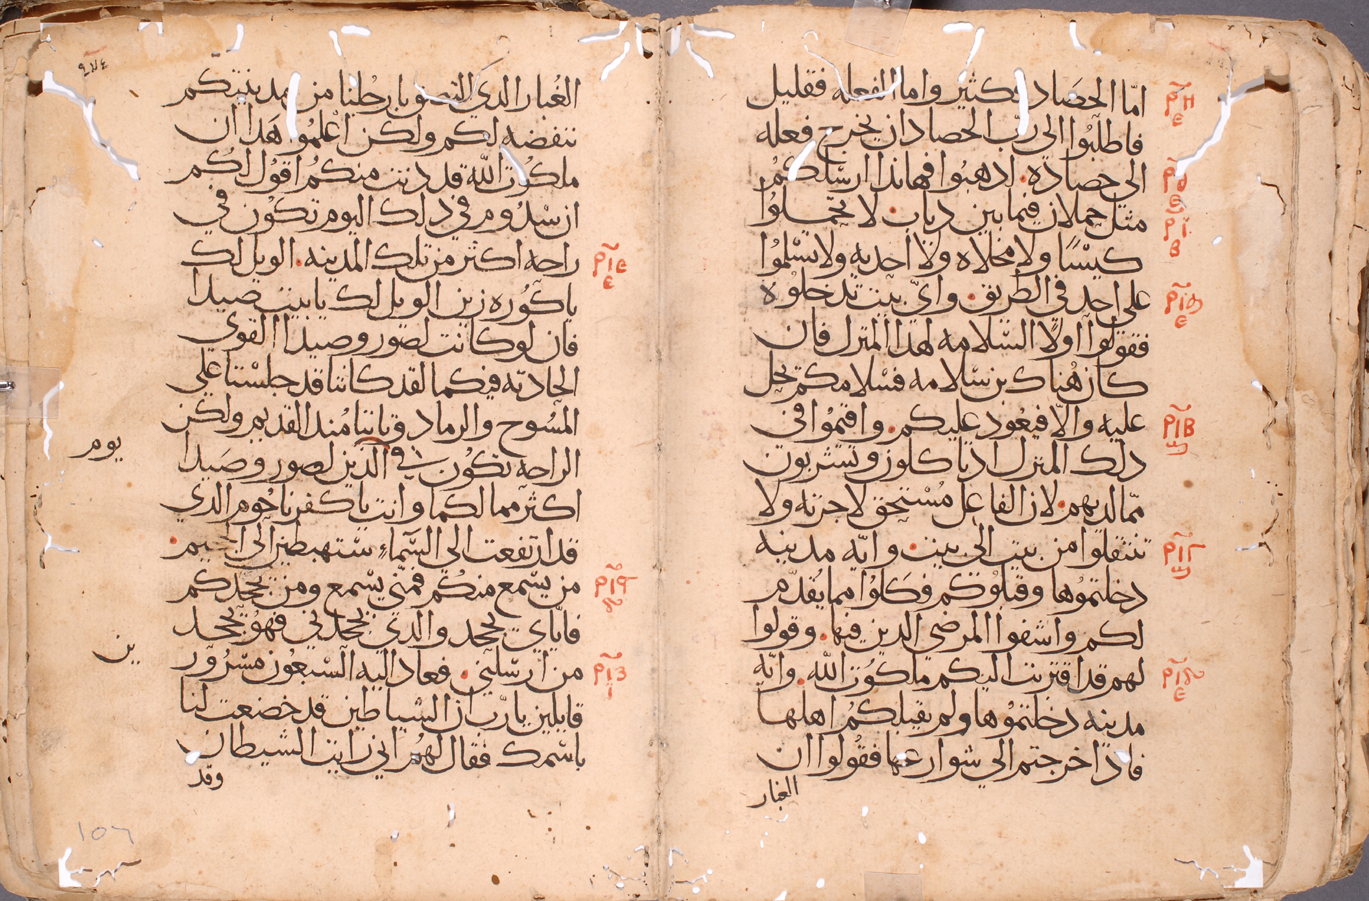 امّا الحَصاد فكثير واما الفعله فقليل
فاطلبُوا الى ربّ الحصاد ان يخرج فعله
الى حصاده. ادهبُوا فهانذا ارسلكُم
مثل حملان فيما بين دياب. لا تحملوُا
كيسًا ولا مخلاه ولا احديه ولا تسْلمُوا
على احد فى الطريق. واىّ بيت تدخلوُه
فقولوا اولًا السّلامه لهدا المنزل فان
كان هُناك بن سَلامه فسْلامكم تحل
عليه والّا فيعُود عليكم. واقيمُوا فى
دلك المنزل ادياكلوُن وتشربون
ممّا لديهم. لان الفاعل مُسْتحق لاجرته ولا
تنتقلوا من بيت الى بيت. وايّه مدينه
دخلتموُها وقبلوُكم فكلوُا مما يقدّم
لكم واشفوا المرضى الدين فيها. وقولوا
لهم قد اقتربت اليكم ملكوُت اللّه. وايّه
مدينه دخلتموُها ولم يقبلكُم اهلها
فادا خرجتم الى شوارعها فقوُلوا ان
الغبار
الغُبار الدي التصق بارجُلنا من مدينتكم
ننفضه لكم ولكن اعْلموُا هَدا ان
ملكوُت اللّه قد دنت منكمُ اقوُل لكُم
ان سْدوُم في دلك اليوم تكوُن في
راحه اكتر من تلك المدينه. الويل لك
ياكوُره زين الويل لك يا بيت صيدا
فان لو كانت لصور وصيدا القوى
الحادته فيكما لقد كانتا قد جلسْتا على
المسُوح والرماد وتابتا مُند القديم ولكن
الراحه تكوُن في الدين لصور وصَيدا
يوم
اكثر مما لكما وانت يا كفرناحُوم الدي
قد ارتفعت الى السّماءِ ستهبطين الى الجحيم.
من يسْمع منكُم فمنّي يسْمع ومن يجحدكم
فايّاي يجحد والدي يجحدني فهوُ يجحد
من ارسَلني. فعاد اليه السّبعُون مسْرُور
ين
قايلين يا ربّ ان الشياطين قد خضعت لنا
باسْمك فقال لهُم اني رايت الشيطان
وقد
١٥٦